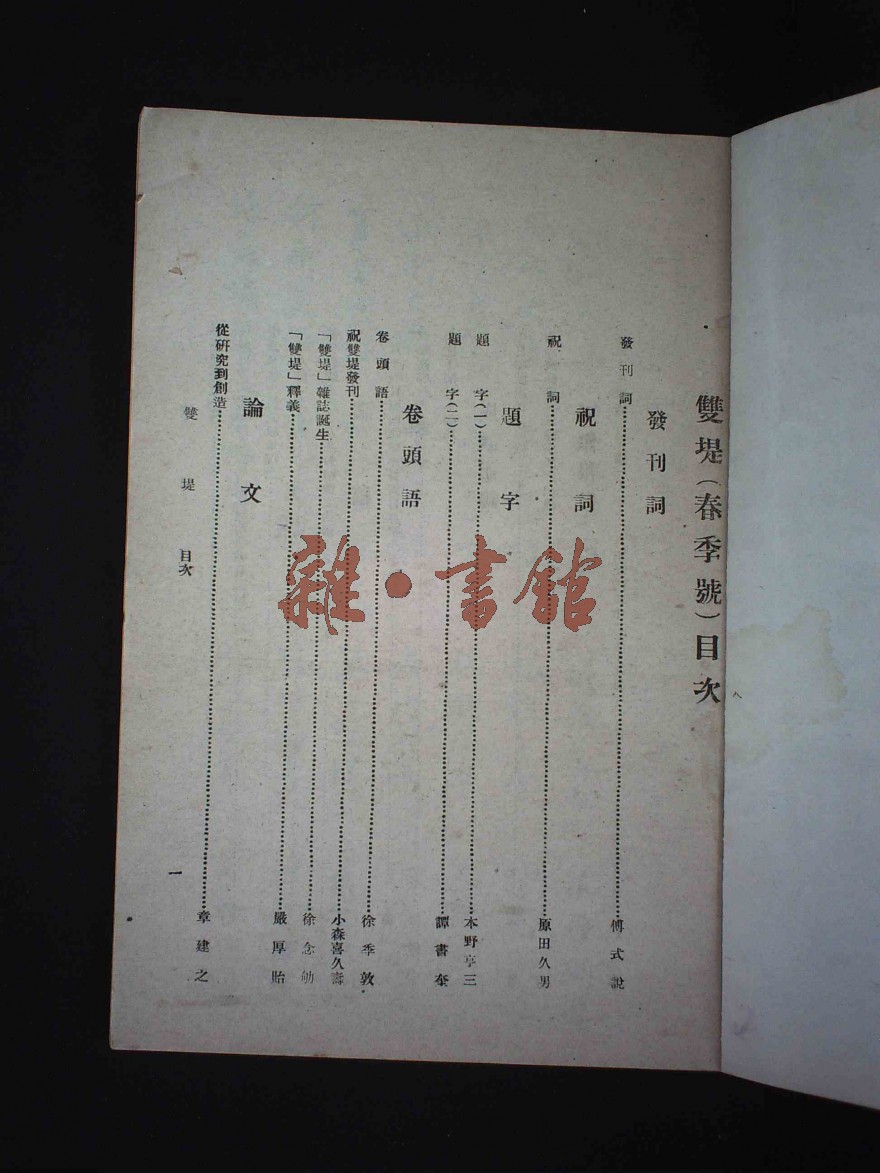 雙堤(春季號)目次
發刊詞
發刊詞……傅式說
祝詞
祝詞……原田久男
題字
題字(一)……本野亨三
題字(二)……譚書奎
卷頭語
卷頭語……徐季敦
祝雙堤發刊……小森喜久壽
「雙堤」雜誌誕生……徐念劬
「雙堤」釋義……嚴厚貽
論文
從研究到創造……章建之
雙堤 目次
一
雜·書館